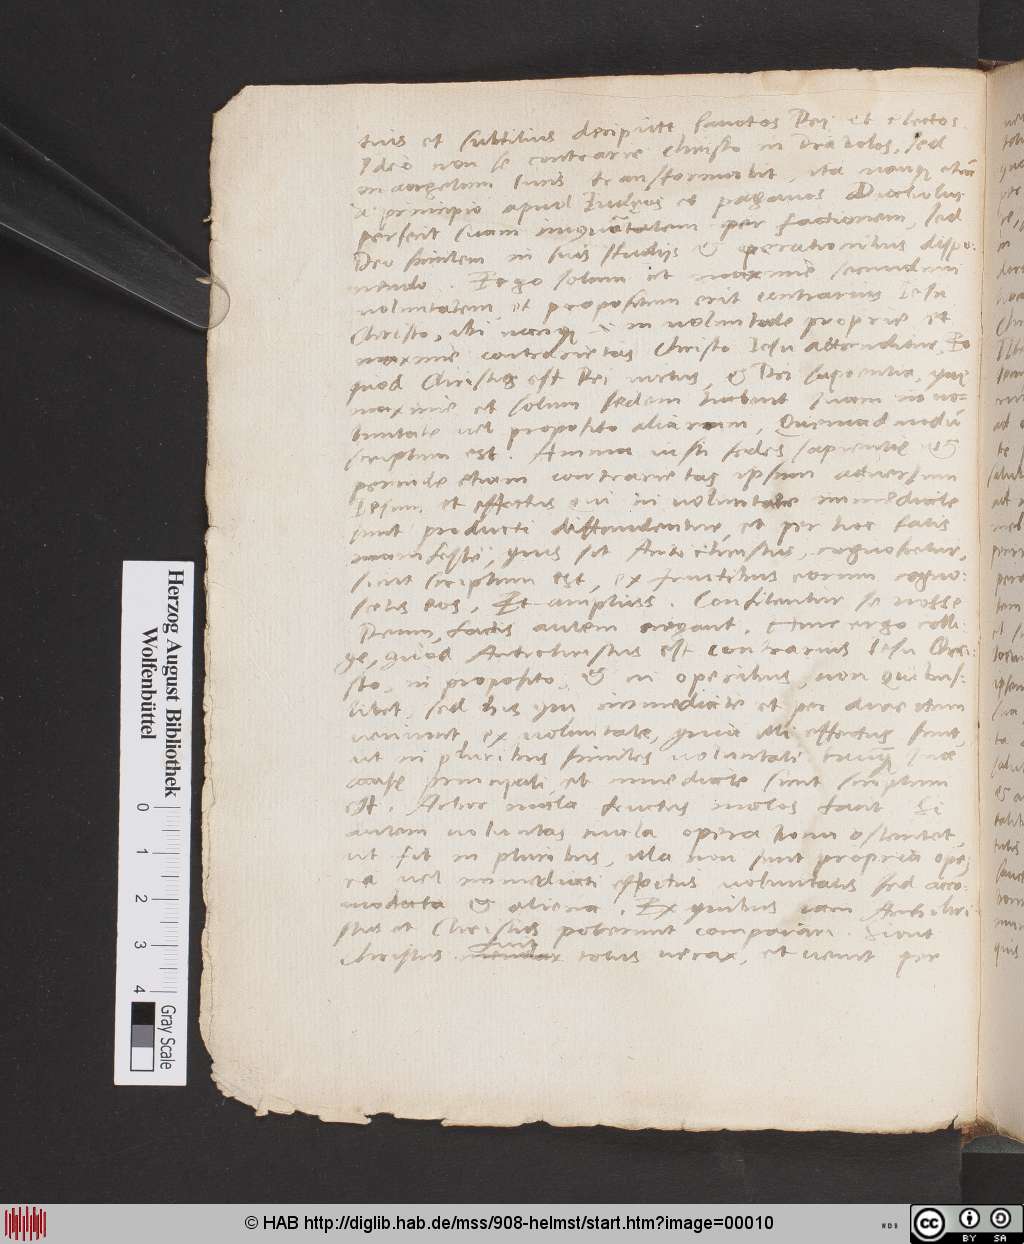 tius et subtilius decipiet sanctos Dei et electos.
Ideo non se contrarie Christo in Diabolos, sed
in angelum lucis transformabit, ita namque etiā
a principio apud Iudęos et paganos Diabolus
perfecit suam iniquitatem per factionem, sed
Deo similem in suis studijs & operationibus dispo-
nendo. Ergo solum et maxime secundum
voluntatem et propositum erit contrarius Iesu
Christo, ubi namque in voluntate proprie et
maxime contrarietas Christo Iesu attenditur. Eo
quod Christus est Dei virtus, & Dei sapientia, quę
maxime et solum sedem habent suam in vo-
luntate vel proposito aliarum, Quemadmodū
scriptum est. Anima iusti sedes sapientię est
perinde etiam contrarietas ipsum adversum
Iesum, et effectus qui in voluntate immediate
sunt producti attenduntur, et per hoc satis
manifeste, quis sit Antichristus, cognoscetur,
sicut scriptum est, ex fructibus eorum cogno-
scetis eos, Et amplius. Confitentur se nosse
Deum, factis autem negant. Hinc ergo colli-
ge, quod Antichristus est contrarius Iesu Chri-
sto, in proposito, & in operibus, non quibus-
libet, sed his qui immediate et per directum
veniunt ex voluntate, quia illi effectus sunt,
ut in pluribus similes voluntati tanquam suę
causę principali, et immediate sicut scriptum
est. Arbor mala fructus malos facit Si
autem voluntas mala opera bona ostentet,
ut fit in pluribus, illa non sunt propria ope-
ra vel immediati effectus voluntatis sed acco-
modata & aliena. Ex quibus iam Antichri-
stus et Christus poterunt comparari. Sicut
Christus fuit totus verax, et venit per
Herzog August Bibliothek
Wolfenbüttel
0 1 2 3 4
Gray Scale
© HAB http://diglib.hab.de/mss/908-helmst/start.htm?image=00010
WDB
cc BY SA